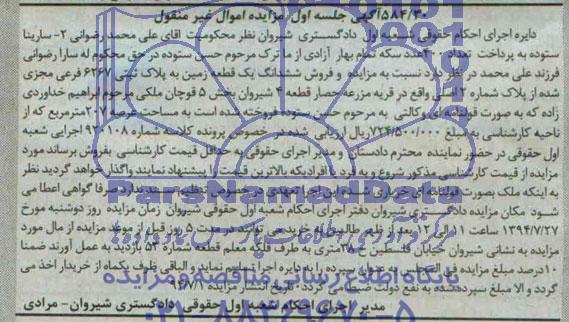 ۵۸۴/۳۰آگهی جلسه اول مزایده اموال غیر منقول
دایره اجرای احکام حقوقی شعبه اول دادگستری شیروان نظر محکومیت آقای علی محمد رضوانی ۲- سارینا
ستوده به پرداخت تعداد ۴۰عدد سکه تمام بهار آزادی از ماترک مرحوم حسن ستوده در حق محکوم له سارا رضوانی
فرزند علی محمد در نظر دارد نسبت به مزایده و فروش ششدانگ یک قطعه زمین به پلاک ثبتی ۶۲۶۷ فرعی مجزی
شده از پلاک شماره ۲ اصلی واقع در قریه مزرعه حصار قطعه ۴ شیروان بخش ۵ قوچان ملکی مرحوم ابراهیم خداوردی
زاده که به صورت قولنامه ای وکالتی به مرحوم حسن ستوده فروخته شده است به مساحت عرصه ۲۰۷مترمربع که از
ناحیه کارشناسی به مبلغ ۷۲۴/۵۰۰/۰۰۰ریال ارزیابی شده در خصوص پرونده کلاسه شماره ۹۴۰۱۰۸ اجرایی شعبه
اول حقوقی در حضور نماینده محترم دادستان و مدیر اجرای حقوقی به حداقل قیمت کارشناسی بفروش برساند مورد
مزایده از قیمت کارشناسی مذکور شروع و به فرد یا افرادیکه بالاترین قیمت را پیشنهاد نمایند واگذار خواهد گردید نظر
به اینکه ملک بصورت قولنامه ای خریداری شده این اجرا تعهدی در خصوص تنظیم سند ندارد صرفا گواهی اعطا می
شود مکان مزایده دادگستری شیروان دفتر اجرای احکام شعبه اول حقوقی شیروان زمان مزایده روز دوشنبه مورخ
۱۳۹۴/۷/۲۷ ساعت ۱۱ الی ۱۲ بعد از ظهر طالبین به خرید می توانند در مدت ۵ روز قبل از موعد مزایده از مال مورد
مزایده به نشانی شیروان خیابان فلسطین خ ۲۸متری به طرف بلکه معلم قطعه شماره ۵۴ بازدید به عمل آورند ضمنا
۱۰درصد مبلغ مزایده فی المجلس به عنوان سپرده را به دایره اجرا تسلیم نماید و الباقی ظرف یکماه از خریدار اخذ می
گردد و الا مبلغ سپرده شده به نفع دولت ضبط می گردد تاریخ انتشار مزایده ۹۴/۷/۱
مدیر اجرای احکام شعبه اول حقوقی دادگستری شیروان- مرادی
ParsNamadData
پایگاه اطلاع رسانی مناقصه و مزایده